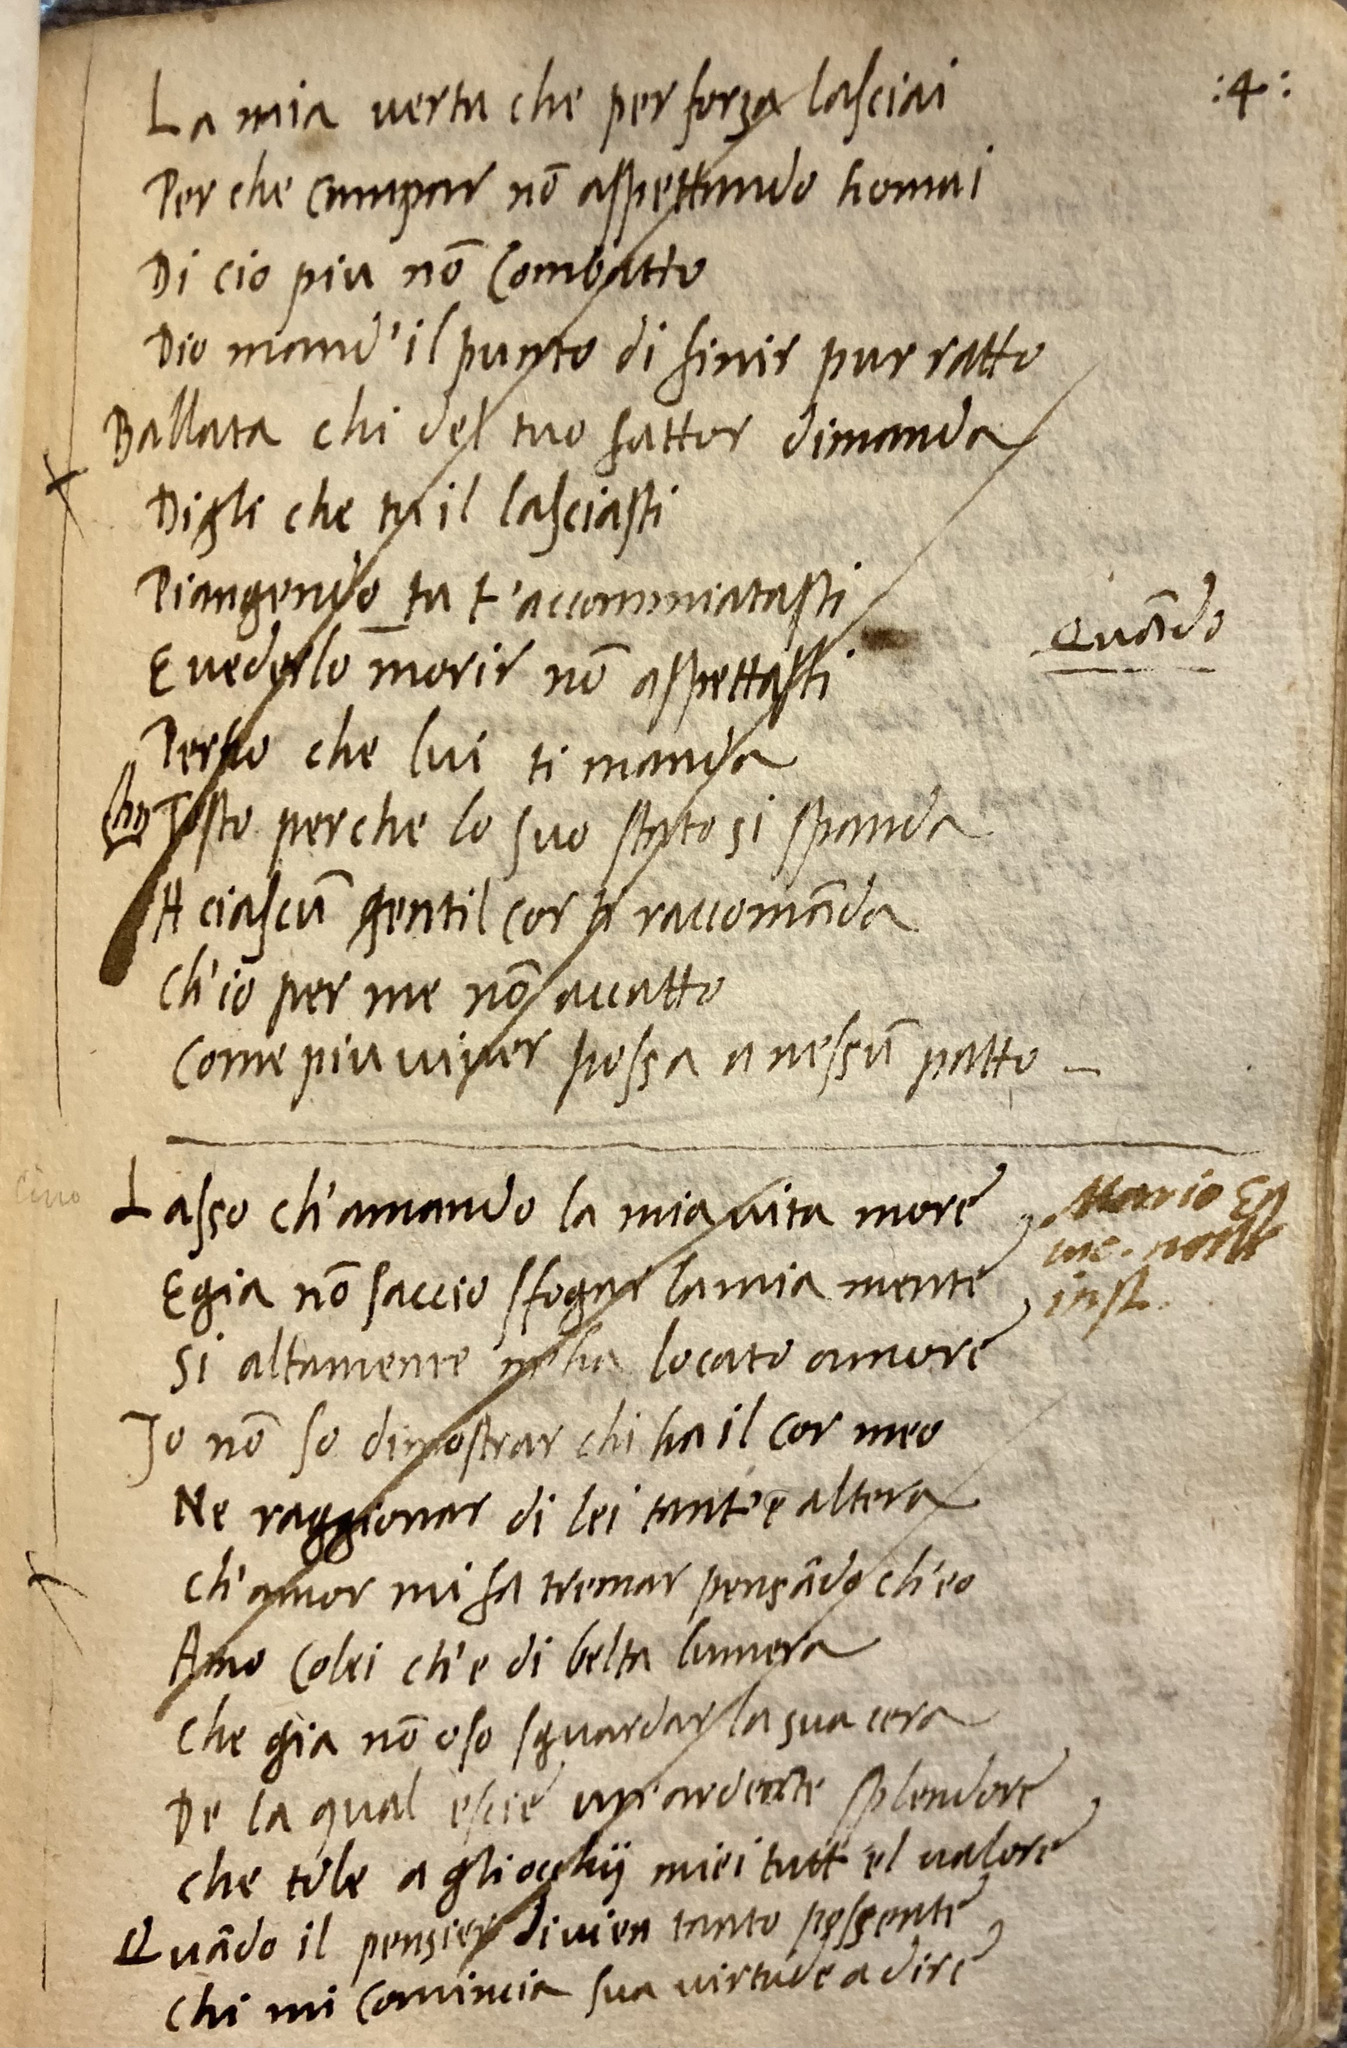 :4:
La mia uertu che per forza lasciai
Per che campar nō aspettando homai
Di cio piu nō Combatto
Dio mand'il punto di finir pur ratto
Ballata chi del tuo fattor dimanda
Digli che tu il lasciasti
Piangendo tu t'accommiatasti
Quādo
E uederlo morir nō aspettasti
che lui ti manda
Tosto perche lo suo stato si spanda
A ciascū gentil cor ti raccomāda
Ch'io per me nō accatto
Come piu uiuer possa a nessū patto
Cino
Lasso ch'amando la mia uita more
Mario Eq
inc. nelle
inst.
E gia nō saccio sfogar la mia mente
Si altamente m'ha locato amore
Io nō so dimostrar chi ha il cor meo
Ne raggionar di lei tant'è altera
Ch'amor mi fa tremar pensādo ch'eo
Amo Colei ch'e di belta lumera
Che gia nō oso sguardar la sua cera
De la qual escie un'ardente splendore
Che tole a gliocchij miei tutt'el ualore
Quādo il pensier diuien tanto possente
Chi mi Comincia sua uirtude a dire